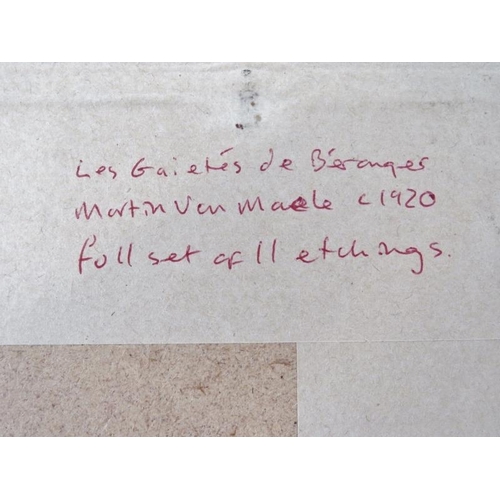 Les Gaietés de Béranger
Martin Van Maele c1920
full set of 11 etchings.